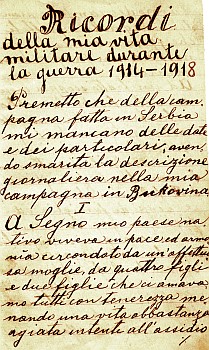 Ricordi
della mia vita
militare durante
la guerra 1914-1918
Premetto che della cam=
pagna fatta in Serbia
mi mancano delle date
e dei particolari, aven=
do smarita la descrizione
giornaliera nella mia
campagna in Bukovina
I
A Segno mio paese na=
tivo vivevo in pace ed armo
nia circondato da un'affettuo
sa moglie, da quattro figli
e due figlie che ci amava=
mo tutti con tenerezza me=
nando una vita abbastanza
agiata intenti all'assiduo